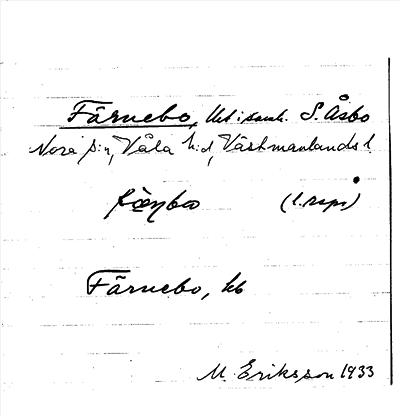 Färnebo, khi saml. S. Åsbo
Nora s:n, Våla h:d, Västmanlands l.
(l. rspr)
Färnebo, hb
M. Eriksson 1933